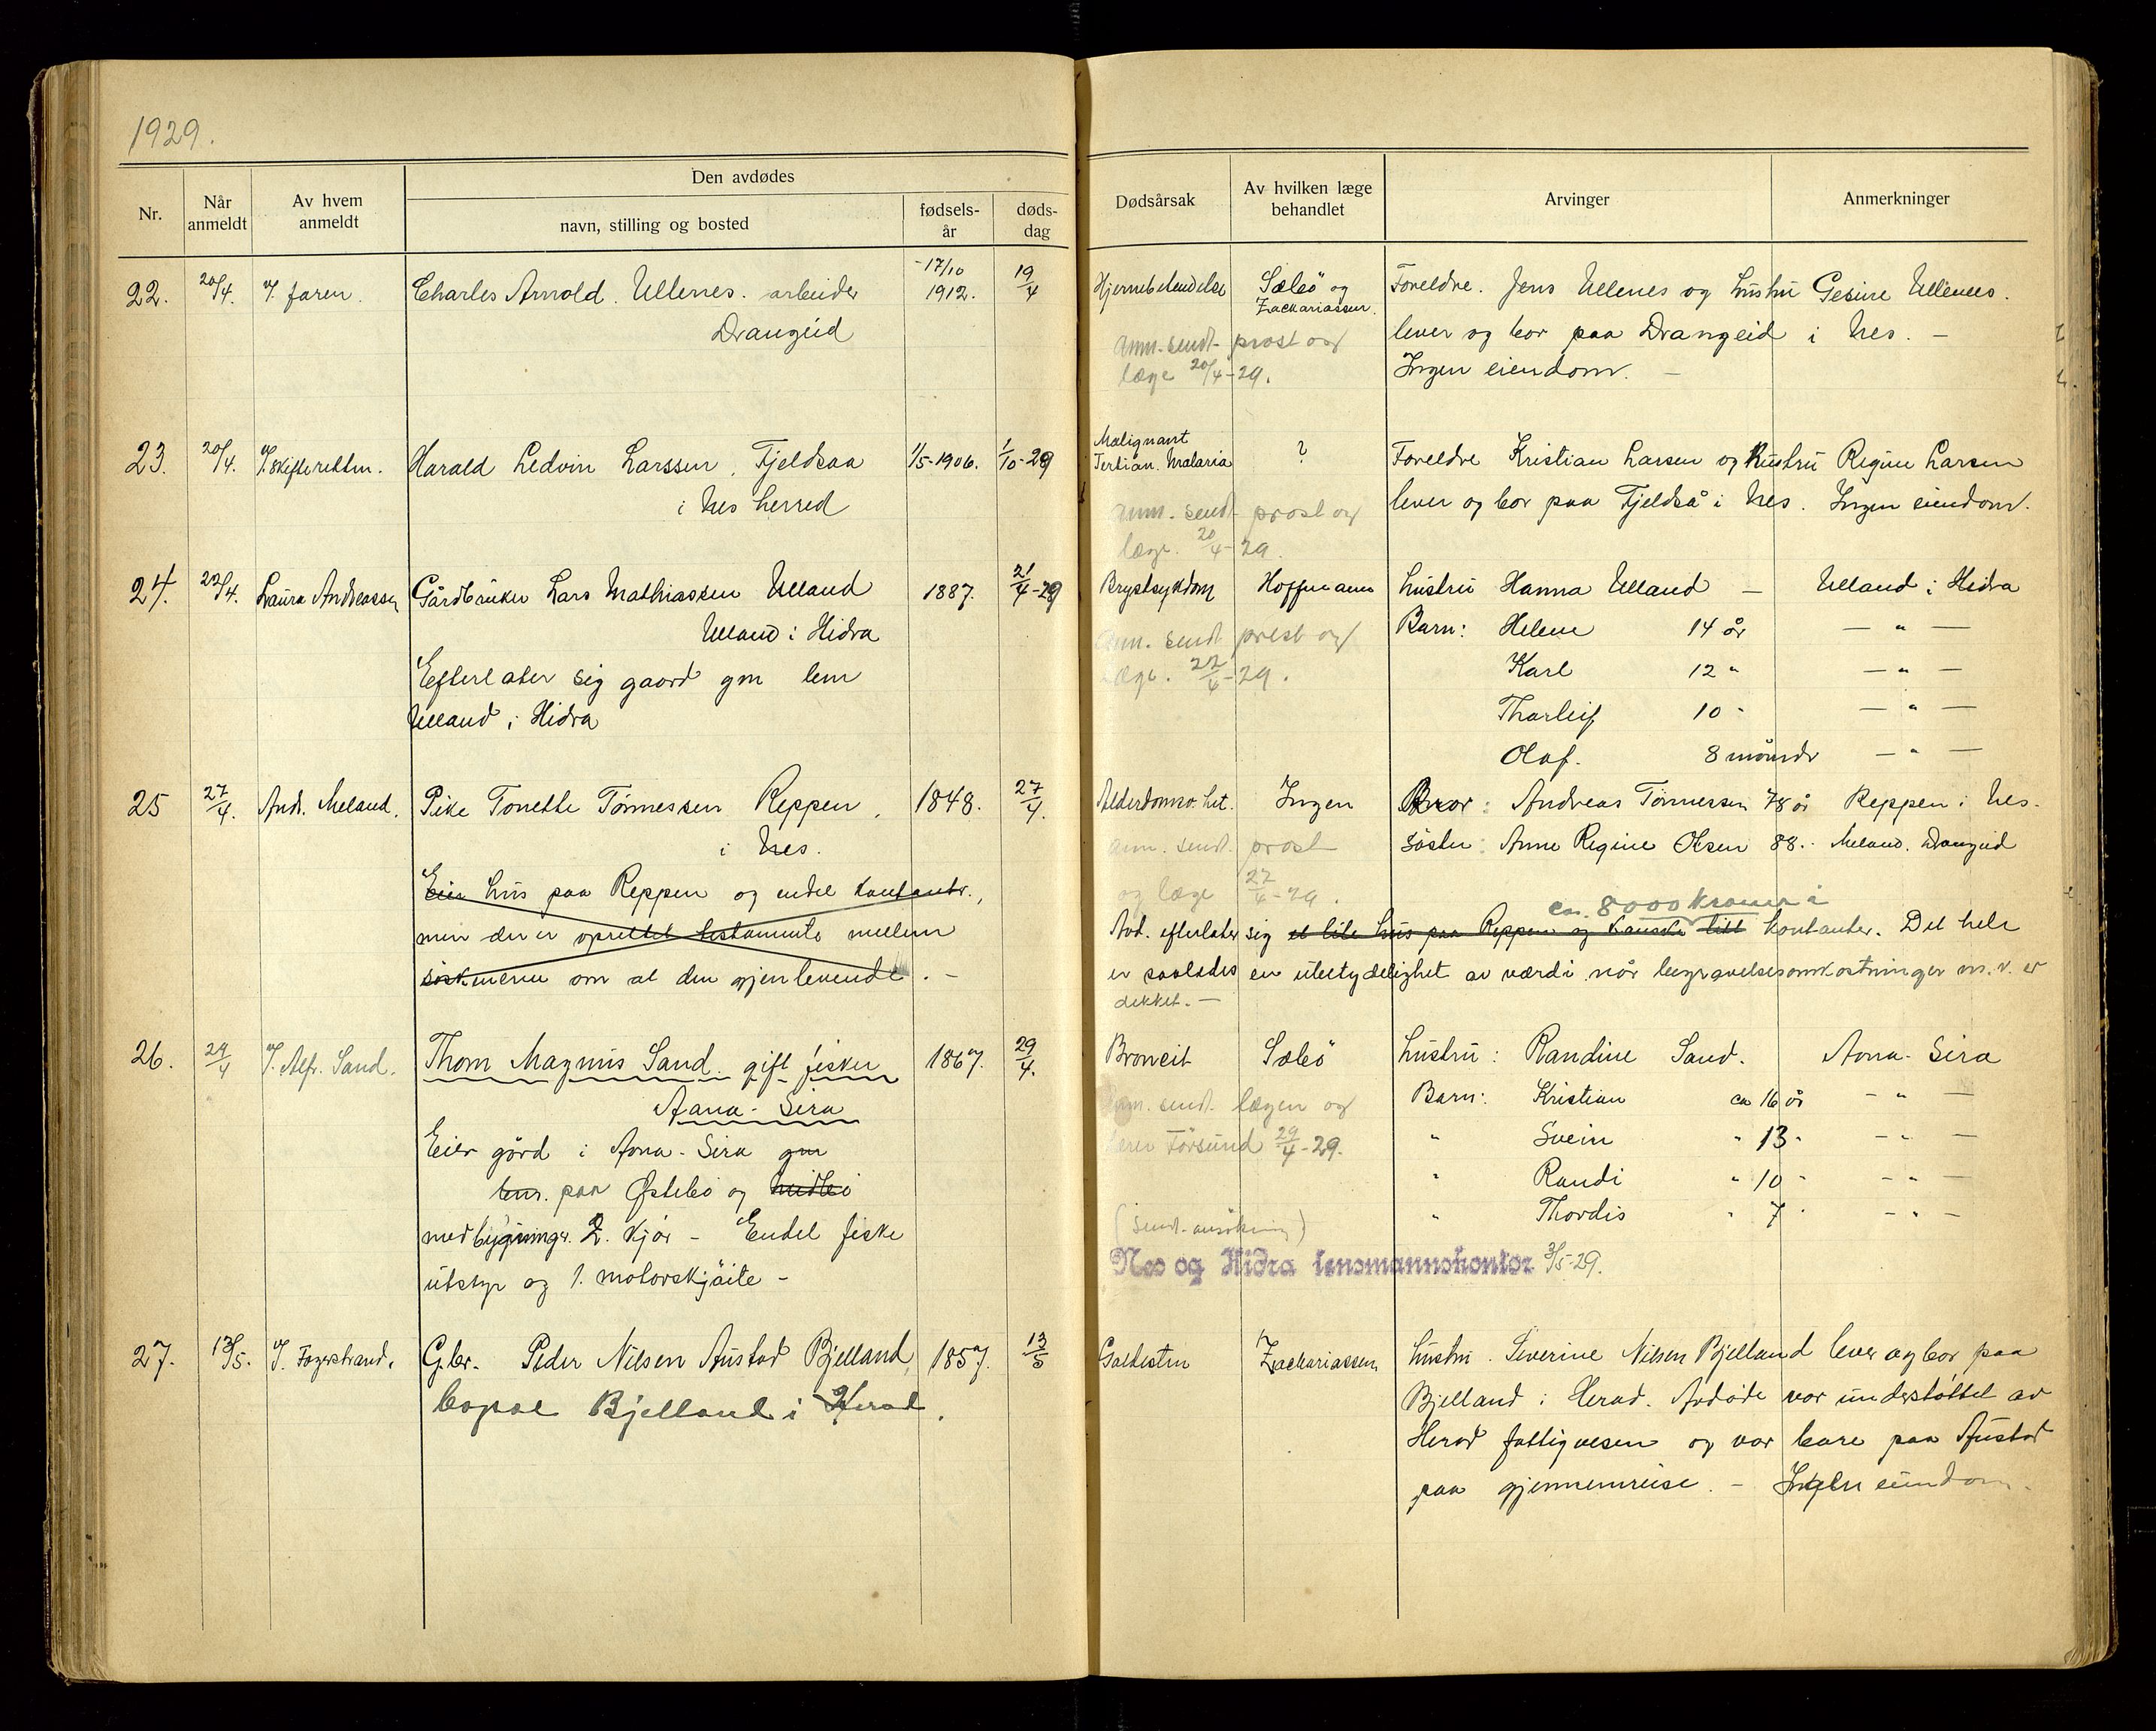 1929.
Nr.
Når anmeldt
Av hvem anmeldt
Den avdødes
navn, stilling og bosted
fødsels-år
døds-dag
Dødsårsak
Av hvilken læge behandlet
Arvinger
Anmerkninger
22. 20/4. v/ faren. Charles Arnold Ullenes. arbeider 17/10 1912. 19/4 Hjernebetendelse Sælbø og Zackariassen. Foreldre. Jens Ullenes og hustru Gesine Ullenes.
Drangeid anm. sendt prost og lever og bor paa Drangeid i Nes. —
læge 20/4-29. Ingen eiendom. —
23. 20/4. v/ skifteretten. Harald Ledvin Larssen, Fjeldsaa 1/5-1906. 1/10-28 Malignant Tertian. Malaria ? Foreldre Kristian Larsen og Hustru Regine Larsen
i Nes herred anm. sendt prost og lever og bor paa Fjeldså i Nes. Ingen eiendom.
læge. 20/4-29.
24. 22/4. Laura Andreassen Gårdbruker Lars Mathiassen Ulland 1887. 21/4-29 Brystsykdom Hoffmann hustru Hanna Ulland — Ulland i Hidra
Ulland i Hidra anm. sendt prest og Barn: Helene 14 år — " —
Efterlater sig gaard gm lem læge. 22/4-29. Karl 12 " — " —
Ulland i Hidra Tharleif 10 " — " —
Olaf. 8 måneder — " —
25 27/4. Andr. Meland. Pike Tonette Tønnessen Reppen, 1848. 27/4. Alderdomssv.het. Ingen Bror: Andreas Tønnessen 78 år Reppen i Nes.
i Nes. anm. sendt. prost søster: Anne Regine Olsen 88. " Meland. Drangeid
Eier hus paa Reppen og endel kontanter., og læge 27/4-29.
ca. 8000 kroner i
men der er oprettet testamente mellem Avd. efterlater sig et lite hus paa Reppen og kanske litt kontanter. Det hele
søskenene om at den gjenlevende. — er saaledes en ubetydelighet av værdi når begravelsesomkostninger m.v. er
dekket. —
26. 29/4 v/ Alfr. Sand. Thom Magnus Sand. gift fisker 1867. 29/4. Broncit Sælbø hustru: Randine Sand. Aana-Sira
Aana-Sira anm. sendt. lægen og Barn: Kristian ca 16 år — " —
Eier gård i Aana-Sira gm Førsund 29/4-29. " Svein " 13 " — " —
lem. paa Østebø og Midbø " Randi " 10 " — " —
med bygninger. 2. kjør — Endel fiske (sendt ansøkning) " Thordis " 7 " — " —
utstyr og 1. motorskjøite — Nes og Hidra lensmannskontor 3/5-29.
27. 13/5. v/ Fagerstrand. G.br. Peder Nilsen Austad Bjelland, 1857. 13/5 Galdesten Zackariassen hustru. Severine Nilsen Bjelland lever og bor paa
bopæl Bjelland i Herad. Bjelland i Herad. Avdøde var understøttet av
Herad fattigvesen og var bare paa Austad
paa gjennemreise. — Ingen eiendom.